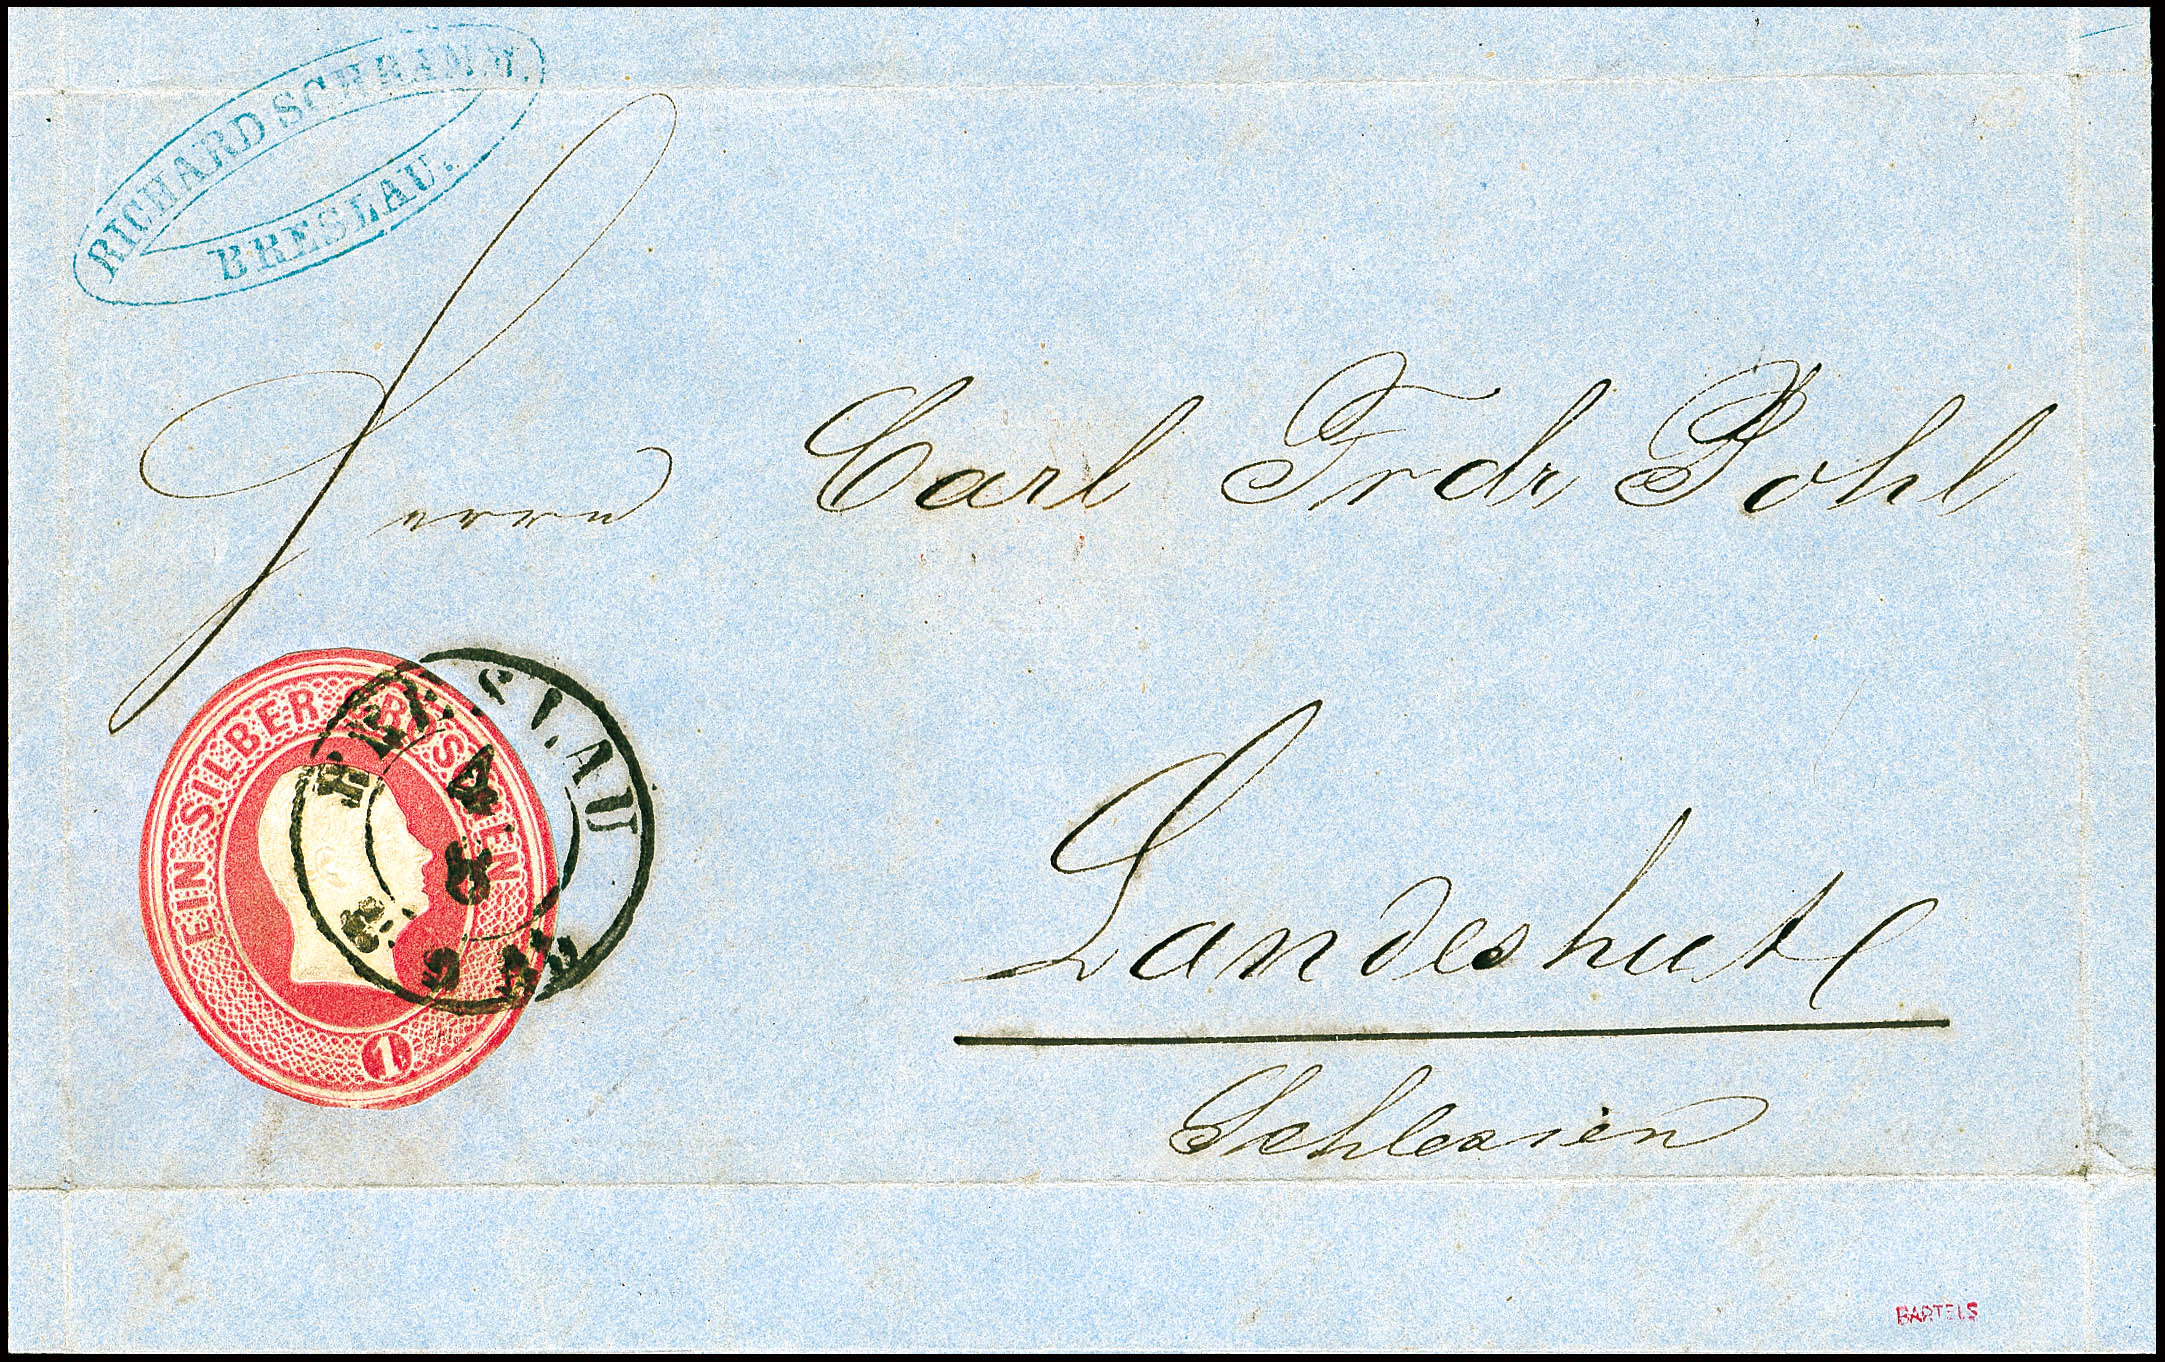 RICHARD SCHRAMM.
BRESLAU.
Herrn Carl Frdr Pohl
EIN SILBER GROSCHEN
1
BRESLAU
Landeshut
Schlesien
BARTELS